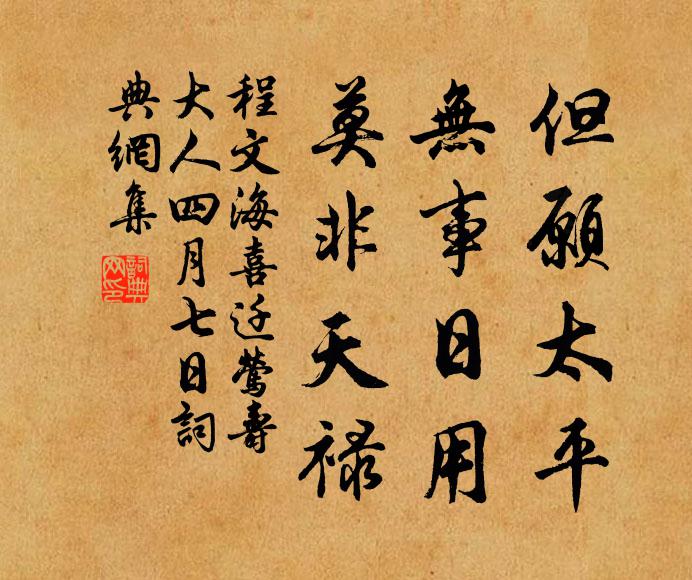 但願太平
無事日用
莫非天祿
程文海喜迁鶯壽
大人四月七日詞
典網集
詞典網印